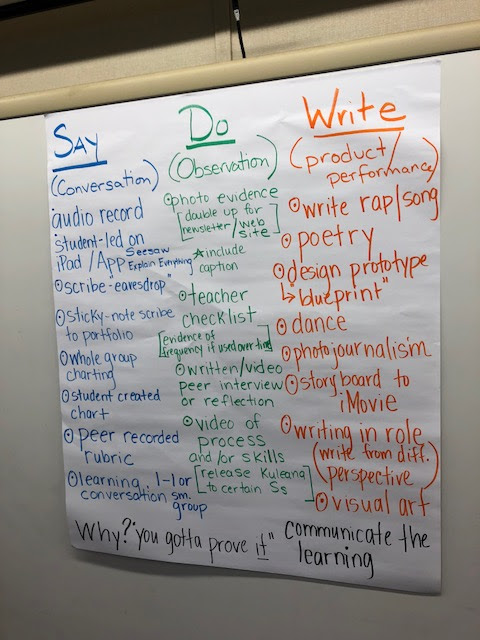 SAY
(Conversation)
audio record
student-led on
iPad/App Seesaw
Explain Everything
scribe-eavesdrop"
sticky-note scribe
to portfolio
whole group
charting
student created
chart
peer recorded
rubric
learning 1-1 or
conversation sm.
group
Do
(Observation)
photo evidence
[double up for
newsletter/web
site]
*include
caption
teacher
checklist
[evidence of
frequency if used over time]
written/video
peer interview
or reflection
video of
process
and/or skills
[release Kuleana
to certain Ss
Write
(product/
performance)
write rap/song
poetry
design prototype
↳"blueprint"
dance
photojournalism
storyboard to
iMovie
writing in role
(write from diff.
perspective)
visual art
Why? "you gotta prove it" Communicate the
learning